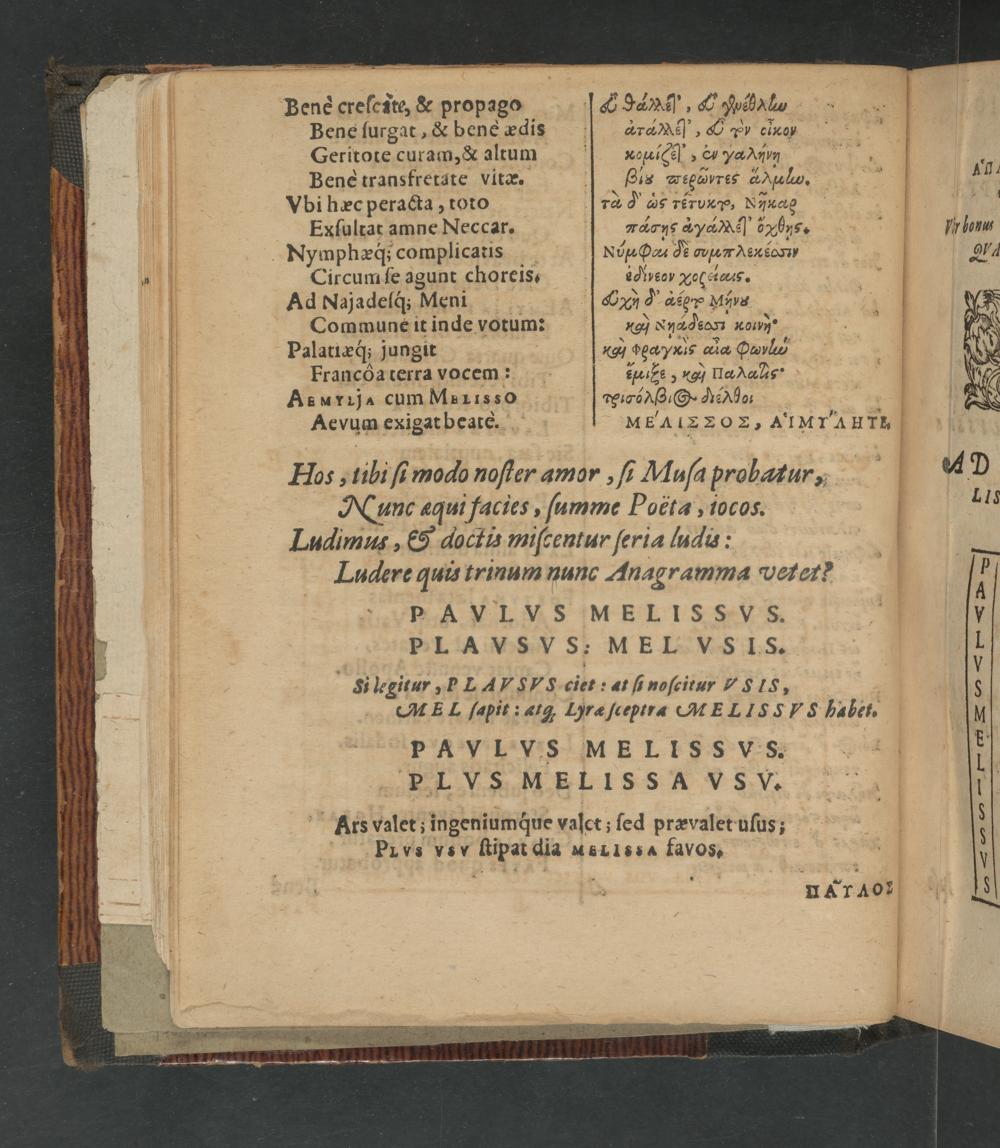 Benè creſcite, & propago
Bene ſurgat, & benè ædis
Geritote curam, & altum
Benè transfretate vitæ.
Vbi hæc peracta, toto
Exſultat amne Neccar.
Nymphæq́; complicatis
Circum ſe agunt choreis,
Ad Najadeſq́; Meni
Commune it inde votum:
Palatiæq́; jungit
Francôa terra vocem:
AEMYLJA cum MELISSO
Aevum exigat beatè.
εὖ θάλλετ', εὖ γενέθλην
ἀτάλλετ', εὖ τὸν οἶκον
κομίζετ', ἐν γαλήνη
βίου περῶντες ἅλμην.
τὰ δ' ὡς τέτυκτο, Νῆκαρ
πάσης ἀγάλλετ' ὄχθης.
Νύμφαι δὲ συμπλεκέσσιν
ἐδίνεον χορείαις.
εὐχὴ δ' ἀέρτο Μήνου
καὶ Νηάδεσσι κοινὴ·
καὶ Φραγκὶς αἶα φωνὴν
ἔμιξε, καὶ Παλατὶς·
τρισόλβιος διέλθοι
ΜΕΛΙΣΣΟΣ, ΑἸΜΥΛΗΤΕ,
Hos, tibi ſi modo noſter amor, ſi Muſa probatur,
Nunc æqui facies, ſumme Poëta, iocos.
Ludimus, & doctis miſcentur ſeria ludis:
Ludere quis trinum nunc Anagramma vetet?
PAVLVS MELISSVS.
PLAVSVS: MEL VSIS.
Si legitur, PLAVSVS ciet: at ſi noſcitur VSIS,
MEL ſapit: atq; Lyræ ſceptra MELISSVS habet.
PAVLVS MELISSVS.
PLVS MELISSA VSV.
Ars valet; ingeniumq́ue valet; ſed prævalet uſus;
PLVS VSV ſtipat dia MELISSA favos.
ΠΑῦΛΟΣ
Vir bonus
AD
LIS
PAVLVS MELISSVS